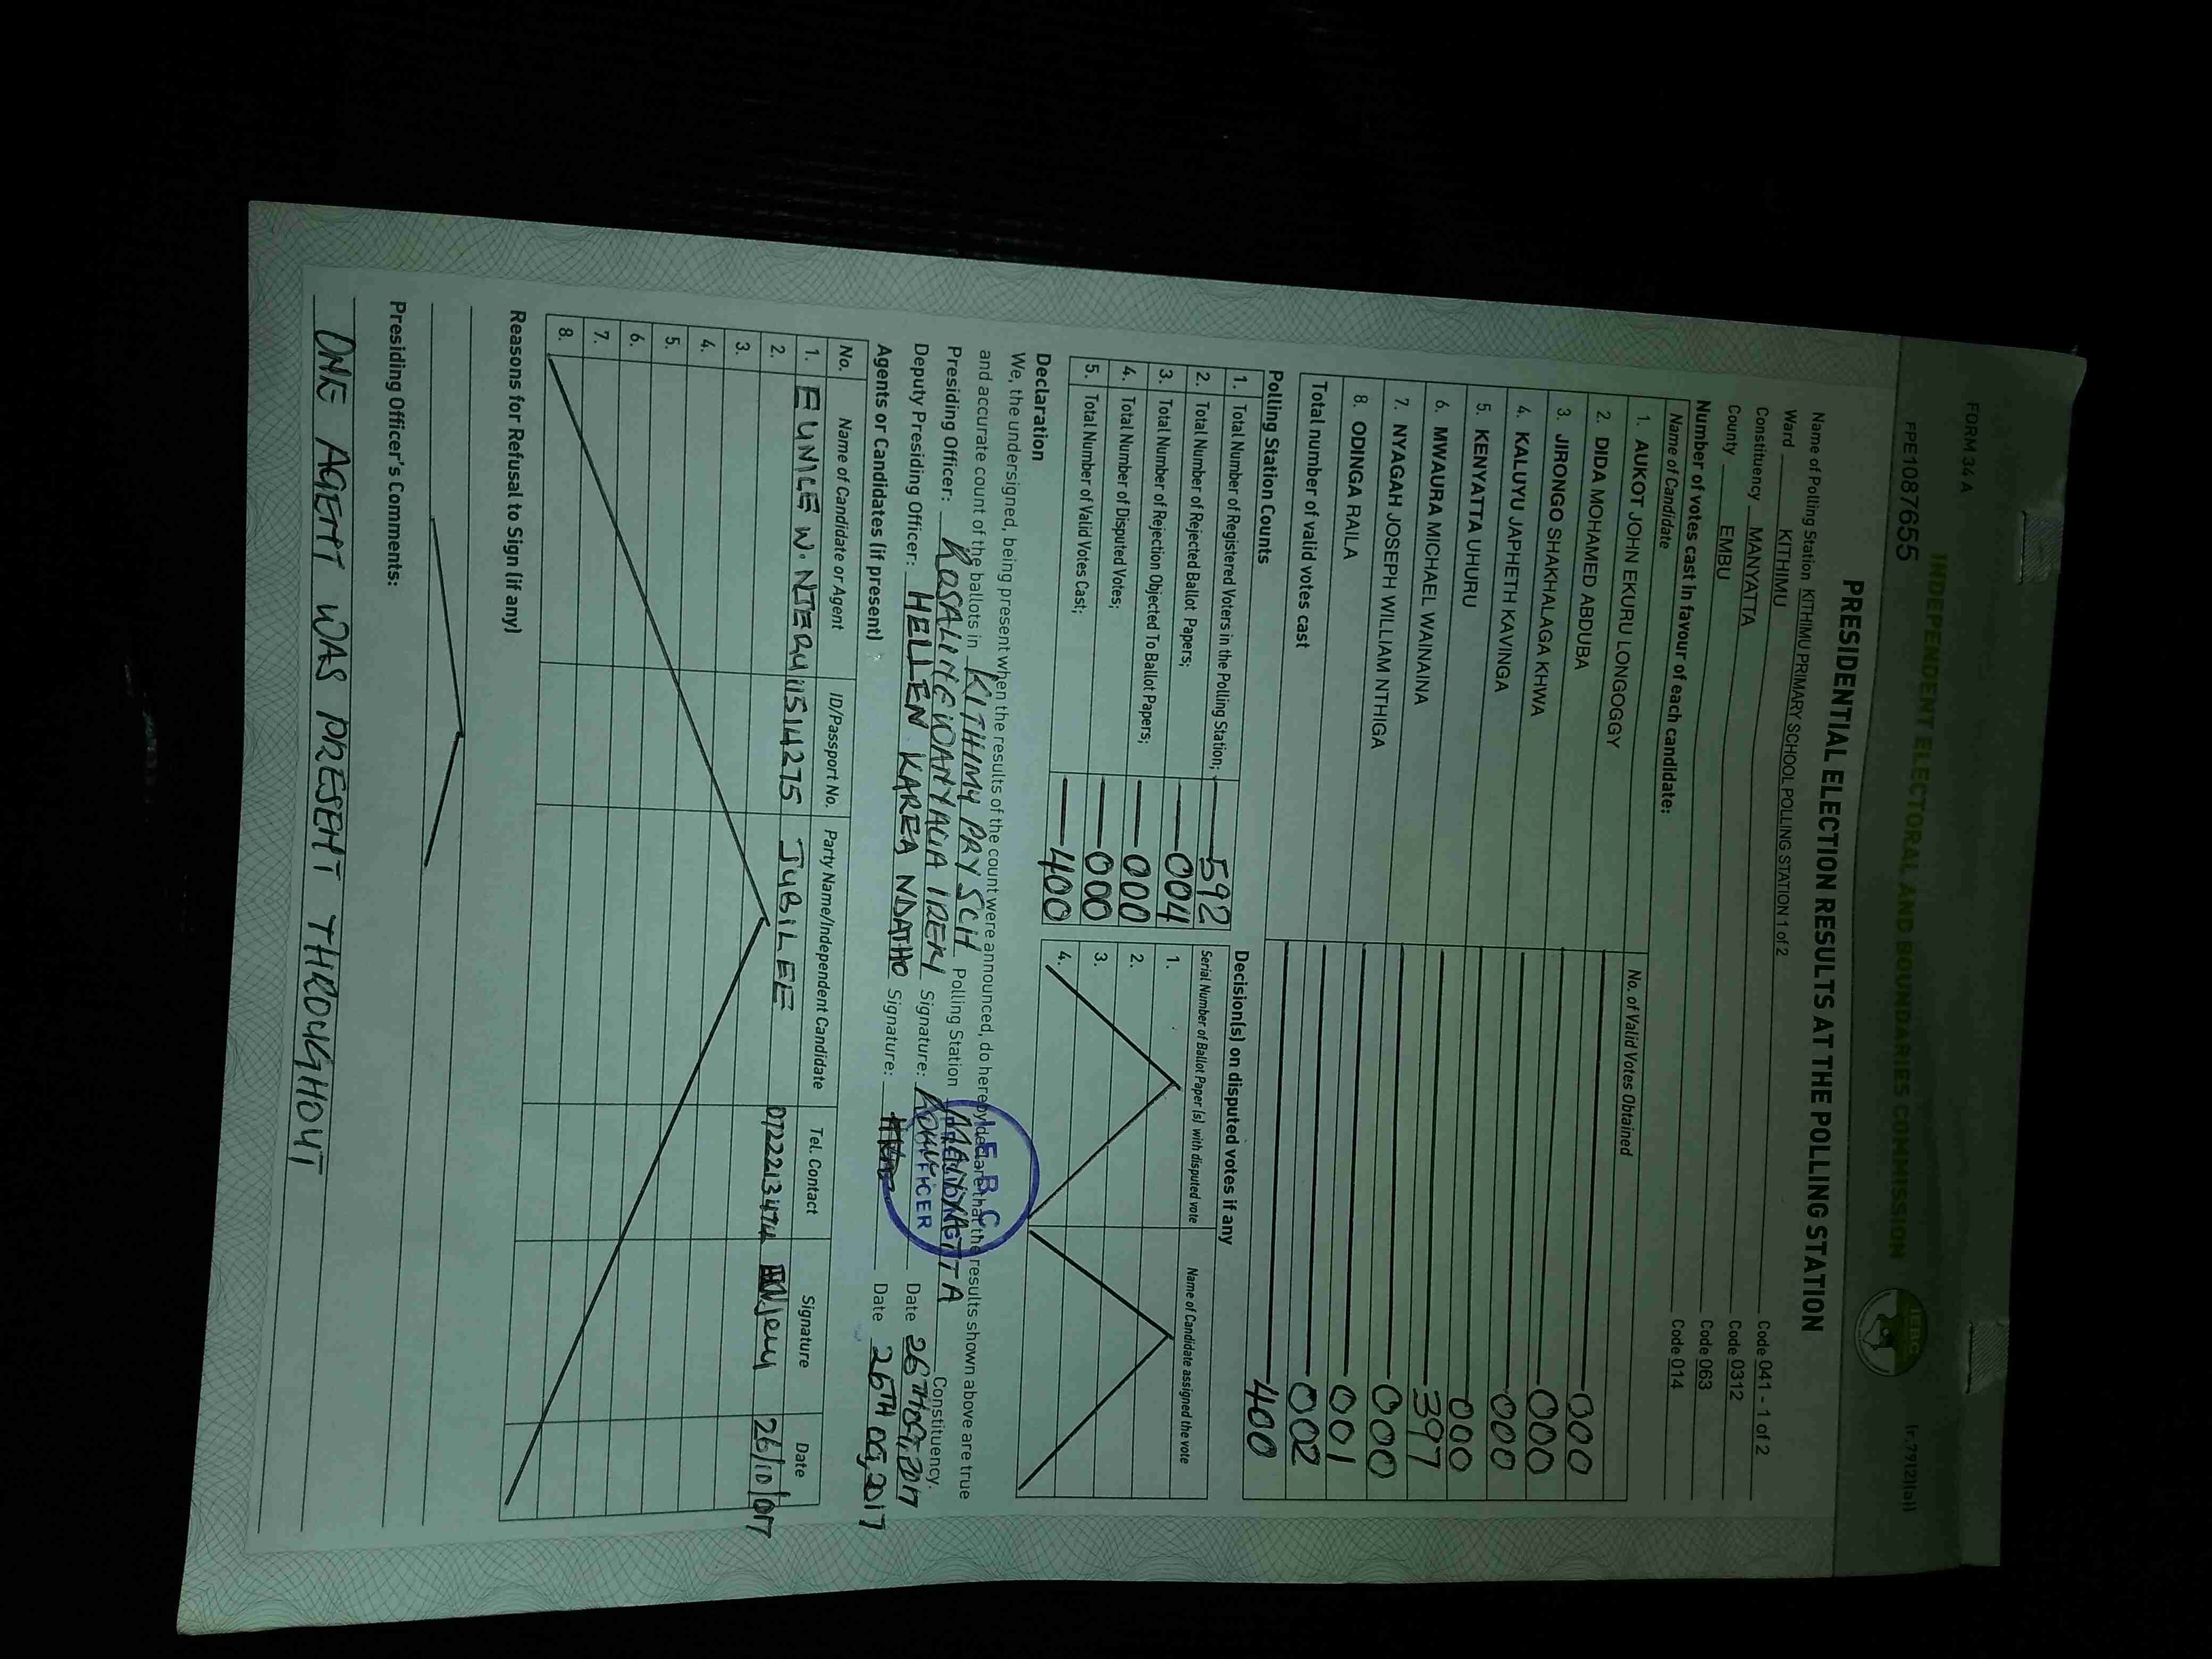 FORM 34 A
(r.79(2)(a))
INDEPENDENT ELECTORAL AND BOUNDARIES COMMISSION
IEBC
FPE1087655
PRESIDENTIAL ELECTION RESULTS AT THE POLLING STATION
Name of Polling Station KITHIMU PRIMARY SCHOOL POLLING STATION 1 of 2 Code 041 - 1 of 2
Ward KITHIMU Code 0312
Constituency MANYATTA Code 063
County EMBU Code 014
Number of votes cast in favour of each candidate:
Name of Candidate No. of Valid Votes Obtained
1. AUKOT JOHN EKURU LONGOGGY 000
2. DIDA MOHAMED ABDUBA 000
3. JIRONGO SHAKHALAGA KHWA 000
4. KALUYU JAPHETH KAVINGA 000
5. KENYATTA UHURU 397
6. MWAURA MICHAEL WAINAINA 000
7. NYAGAH JOSEPH WILLIAM NTHIGA 001
8. ODINGA RAILA 002
Total number of valid votes cast 400
Polling Station Counts
1. Total Number of Registered Voters in the Polling Station; 592
2. Total Number of Rejected Ballot Papers; 004
3. Total Number of Rejection Objected To Ballot Papers; 000
4. Total Number of Disputed Votes; 000
5. Total Number of Valid Votes Cast; 400
Decision(s) on disputed votes if any
Serial Number of Ballot Paper (s) with disputed vote Name of Candidate assigned the vote
1.
2.
3.
4.
Declaration
We, the undersigned, being present when the results of the count were announced, do hereby declare that the results shown above are true
and accurate count of the ballots in KITHIMU PRY SCH Polling Station MANYATTA Constituency.
Presiding Officer: ROSALINE IRERI Signature: Date 26TH OCT, 2017
Deputy Presiding Officer: HELLEN KAREA NDATHO Signature: Date 26TH OCT, 2017
IEBC
OFFICER
Agents or Candidates (if present)
No. Name of Candidate or Agent ID/Passport No. Party Name/Independent Candidate Tel. Contact Signature Date
1. EUNICE W. NJERU 11514275 JUBILEE 0722213474 26/10/017
2.
3.
4.
5.
6.
7.
8.
Reasons for Refusal to Sign (if any)
Presiding Officer's Comments:
ONE AGENT WAS PRESENT THROUGHOUT